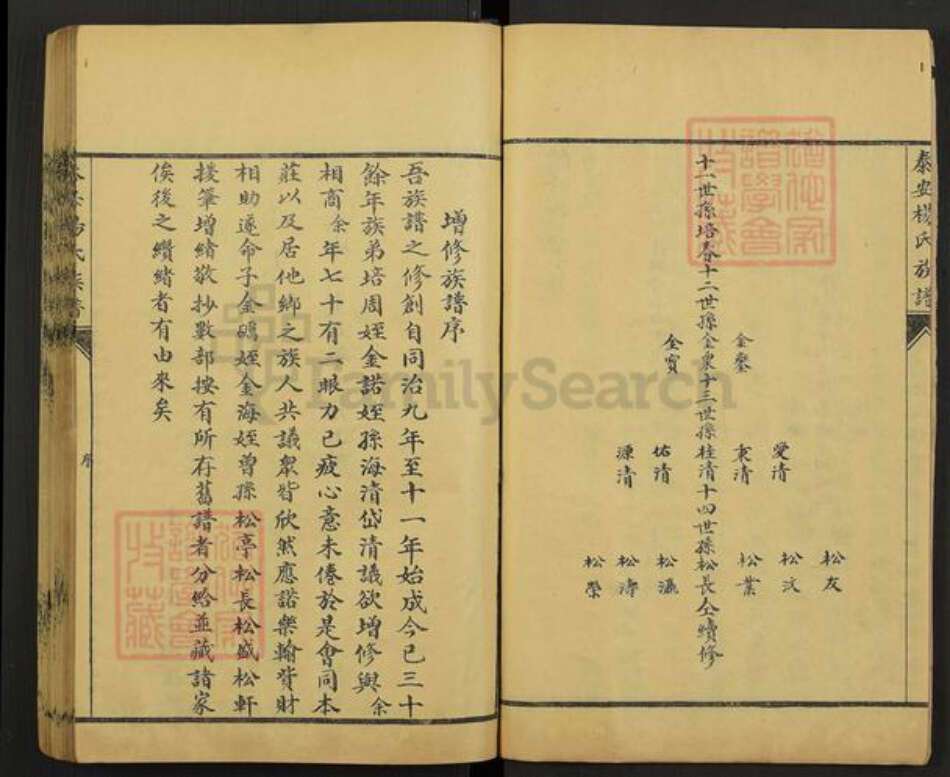 泰安楊氏族譜
松友
愛清 松汶
金鏊 秉清 松業
十一世孫培春十二世孫金衆十三世孫桂清十四世孫松長仝續修
金寶 佑清 松瀛
源清 松濤
松榮
增修族譜序
吾族譜之修創自同治九年至十一年始成今已三十
餘年族弟培周姪金諾姪孫海清岱清議欲增修與余
相商余年七十有二眼力已疲心意未倦於是會同本
莊以及居他鄉之族人共議衆皆欣然應諾樂輸資財
相助遂命子金鳴姪金海姪曾孫松亭松長松盛松軒
援筆增緒敬抄數部按有所存舊譜者分給並藏諸家
俟後之纘緒者有由來矣
序
FamilySearch